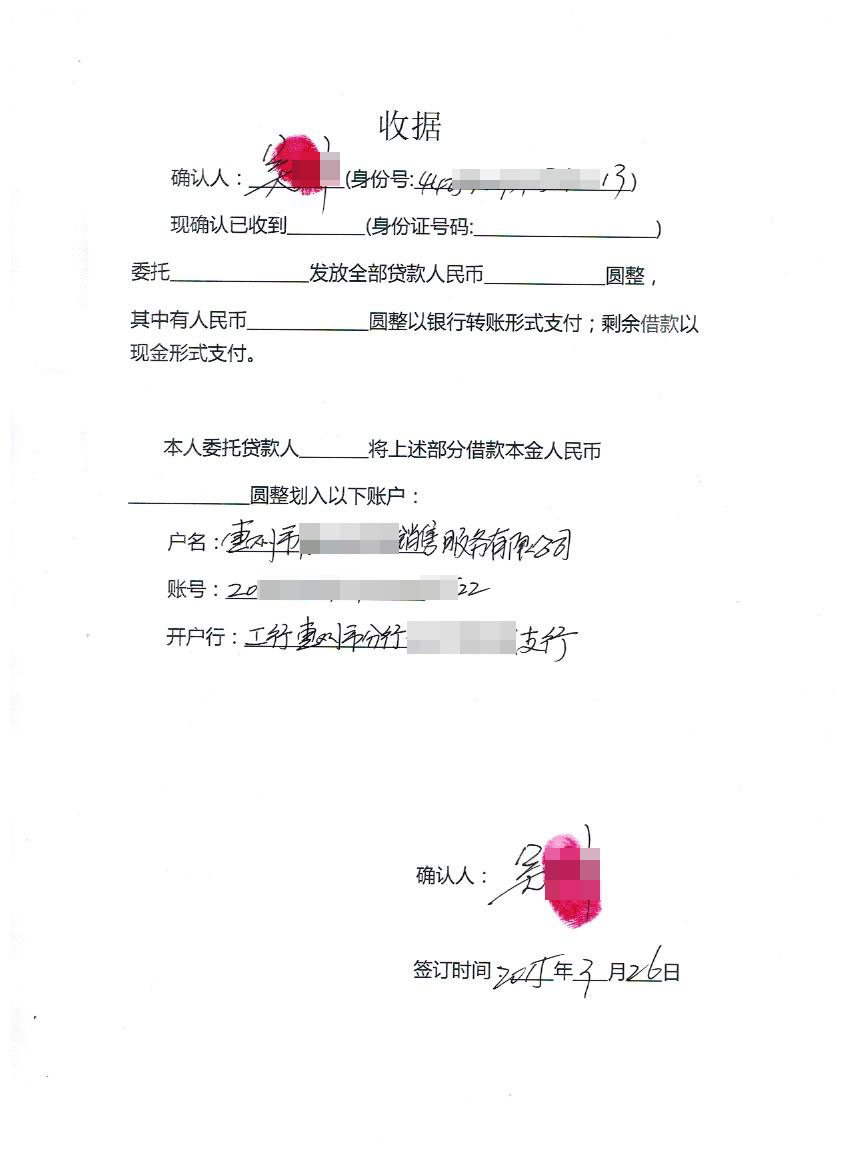 收据
确认人：吴 (身份号: 44 13)
现确认已收到________(身份证号码:__________________)
委托______________发放全部贷款人民币____________圆整，
其中有人民币____________圆整以银行转账形式支付；剩余借款以
现金形式支付。
本人委托贷款人_______将上述部分借款本金人民币
____________圆整划入以下账户：
户名：惠州市 销售服务有限公司
账号：20 22
开户行：工行惠州市分行 支行
确认人：吴
签订时间：2015年3月26日